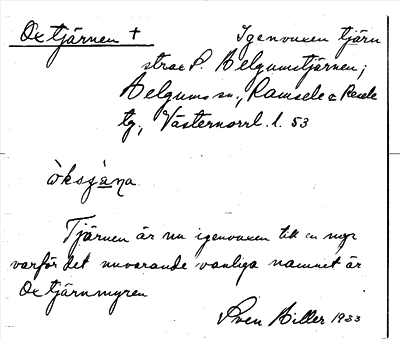 Oxtjärnen + Igenvuxen tjärn
strax P. Helgumstjärnen;
Helgums sn., Ramsele & Resele
tg, Västernorrl. l. 53
òksʒæ̀ṇa
Tjärnen är nu igenvuxen till en myr
varför det nuvarande vanliga namnet är
Oxtjärnmyren
Sven Hiller 1933